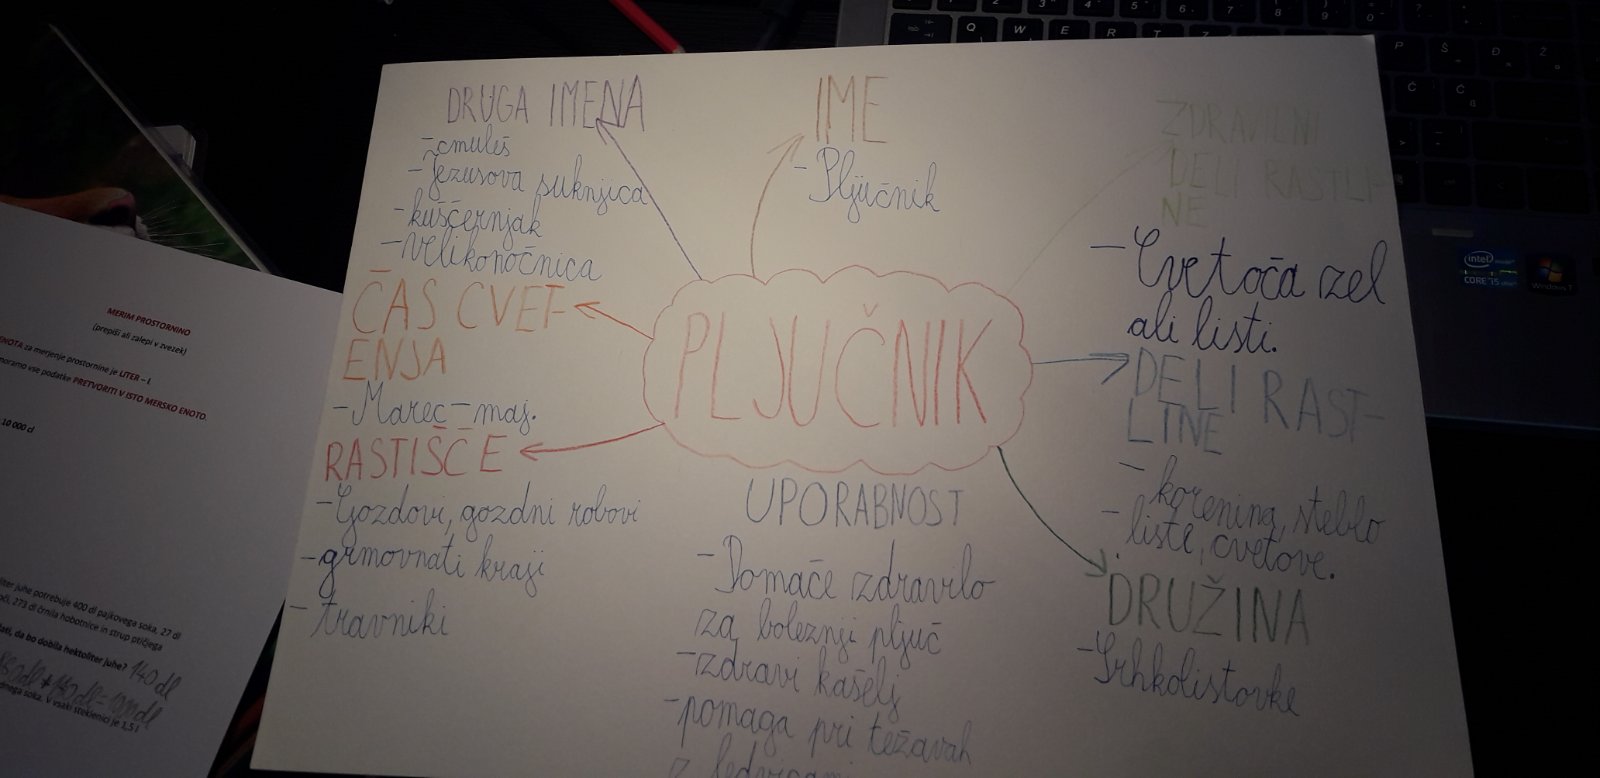 DRUGA IMENA
- cmuleš
- Jezusova suknjica
- kuščernjak
- velikonočnica
IME
- Pljučnik
ZDRAVILNI
DELI RASTLI-
NE
- Cvetoča zel
ali listi.
ČAS CVET-
ENJA
- Marec - maj.
PLJUČNIK
DELI RAST-
LINE
- korenina, steblo
- liste, cvetove.
RASTIŠČE
- Gozdovi, gozdni robovi
- grmovnati kraji
- travniki
UPORABNOST
- Domače zdravilo
za boleznji pljuč
- zdravi kašelj
- pomaga pri težavah
z ledvicami
DRUŽINA
- Srhkolistovke
MERIM PROSTORNINO
(prepiši ali zalepi v zvezek)
ENOTA za merjenje prostornine je LITER – l.
moramo vse podatke PRETVORITI V ISTO MERSKO ENOTO.
10 000 cl
liter juhe potrebuje 400 dl pajkovega soka, 27 dl
273 dl črnila hobotnice in strup ptičjega
dati, da bo dobila hektoliter juhe? 140 dl
soka. V vsaki steklenici je 1,5 l
intel
CORE i5
Windows 7
Q W E R T Z
P Š Đ Ž
Č Ć